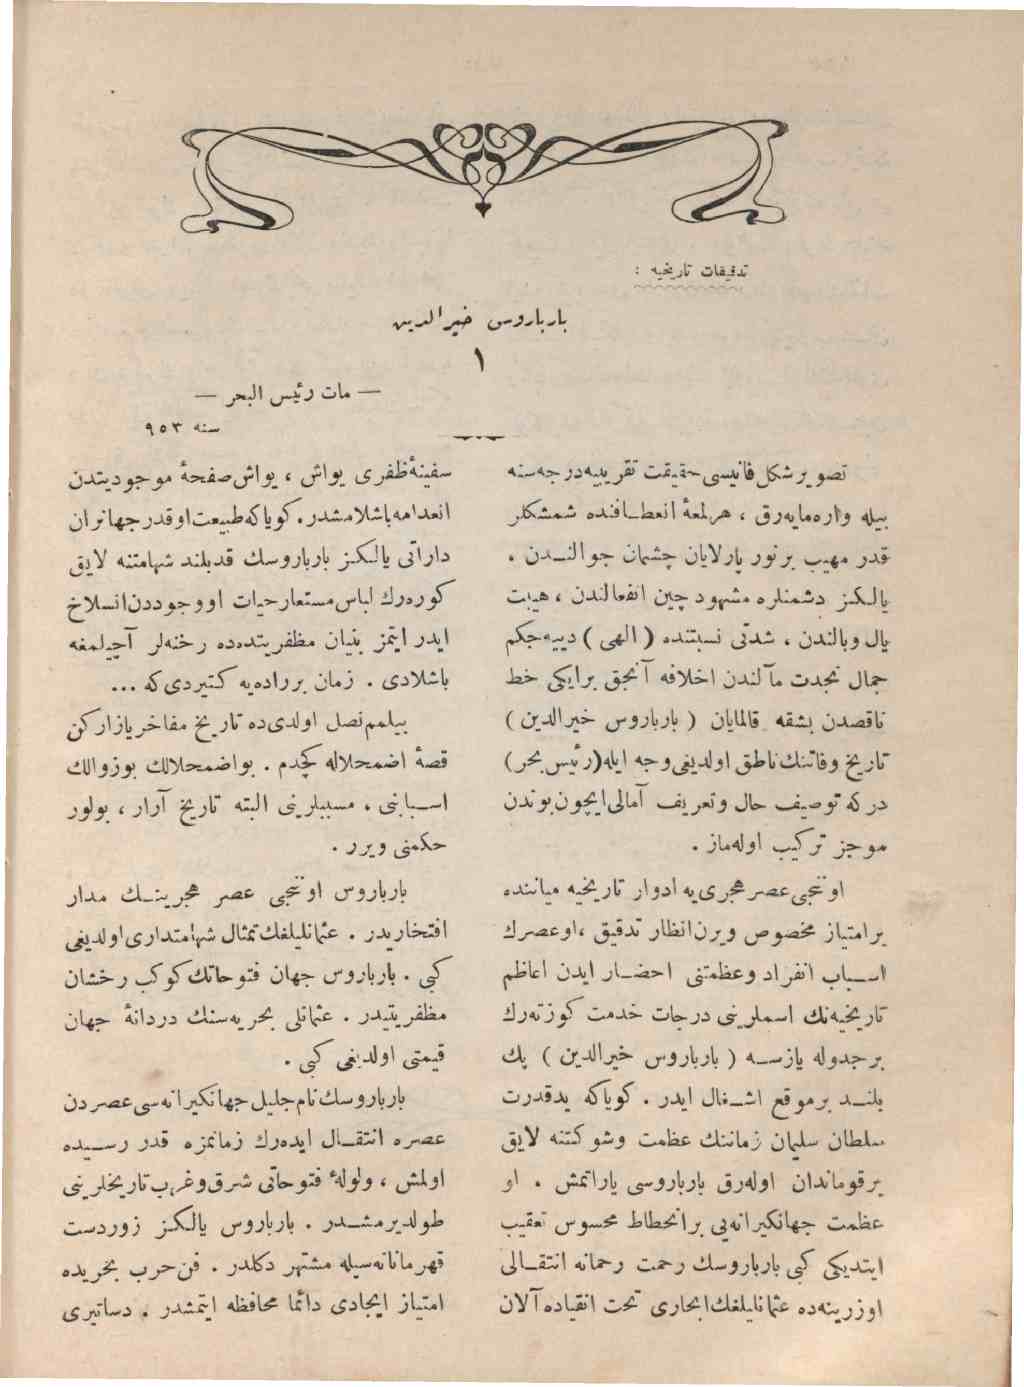 تدقیقات تاریخیه :
بارباروس خیرالدین
١
— مات رئیس البحر —
سنه ٩٥٣
تصویر شکل فانیسی حقیقت تقریبیه درجه سنه
بیله واره مایه رق ، هر لمعهٔ انعطافنده شمشکلر
قدر مهیب بر نور پارلایان چشمان جوالندن .
یالکز دشمنلره مشهود چین انفعالندن ، هیبت
یال وبالندن ، شدتی نسبتنده ( الهی ) دییه جکم
جمال نجدت مآلندن اخلافه آنجق بر ایکی خط
ناقصدن بشقه قالمایان ( بارباروس خیرالدین )
تاریخ وفاتنك ناطق اولدیغی وجه ایله (رئیس بحر)
در که توصیف حال وتعریف آمالی ایچون بوندن
موجز ترکیب اوله ماز .
اوننجی عصر هجری یه ادوار تاریخیه میاننده
بر امتیاز مخصوص ویرن انظار تدقیق ، او عصرك
اسباب انفراد وعظمتنی احضار ایدن اعاظم
تاریخیه نك اسملرینی درجات خدمت کوزته رك
بر جدوله یازسه ( بارباروس خیرالدین ) پك
بلند بر موقع اشغال ایدر . کویا که ید قدرت
سلطان سلیمان زماننك عظمت وشوکتنه لایق
بر قوماندان اوله رق بارباروسی یاراتمش . او
عظمت جهانکیرانه یی بر انحطاط محسوس تعقیب
ایتدیکی کبی بارباروسك رحمت رحمانه انتقالی
اوزرینه ده عثمانلیلغك ابحاری تحت انقیاده آلان
سفینهٔ ظفری یواش ، یواش صفحهٔ موجودیتدن
انعدامه باشلامشدر . کویا که طبیعت او قدر جهانران
داراتی یالکز بارباروسك قد بلند شهامتنه لایق
کوره رك لباس مستعار حیات او وجوددن انسلاخ
ایدر ایتمز بنیان مظفریتده ده رخنه لر آچیلمغه
باشلادی . زمان بر راده یه کتیردی که ...
بیلمم نصل اولدی ده تاریخ مفاخر یازارکن
قصهٔ اضمحلاله کچدم . بو اضمحلالك بو زوالك
اسبابنی ، مسببلرینی البته تاریخ آرار ، بولور
حکمنی ویرر .
بارباروس اوننجی عصر هجرینك مدار
افتخاریدر . عثمانلیلغك تمثال شهامتداری اولدیغی
کبی . بارباروس جهان فتوحاتك کوکب رخشان
مظفریتیدر . عثمانلی بحریه سنك دردانهٔ جهان
قیمتی اولدیغی کبی .
بارباروسك نام جلیل جهانکیرانه سی عصردن
عصره انتقال ایده رك زمانمزه قدر رسیده
اولمش ، ولولهٔ فتوحاتی شرق وغرب تاریخلرینی
طولدیرمشدر . بارباروس یالکز زوردست
قهرمانانه سیله مشتهر دکلدر . فن حرب بحریده
امتیاز ایجادی دائما محافظه ایتمشدر . دساتیری